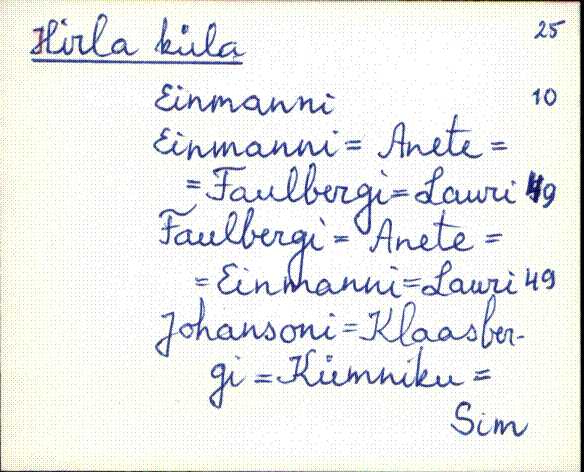 Hirla küla 25
Einmanni 10
Einmanni = Anete =
= Faulbergi = Lauri 49
Faulbergi = Anete =
= Einmanni = Lauri 49
Johansoni = Klaasber-
gi = Kümniku =
Sim